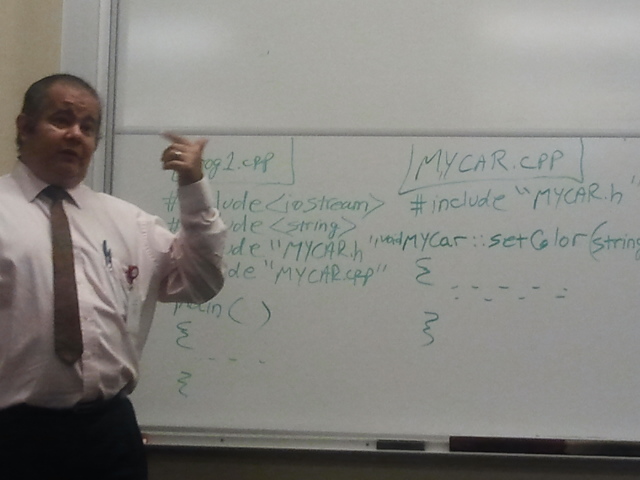 og1.cpp
#include <iostream>
#include <string>
ude "MYCAR.h"
de "MYCAR.cpp"
main( )
{
- - - -
}
MYCAR.CPP
#include "MYCAR.h"
void MYCar::setColor(string
{
- - - - - -
}